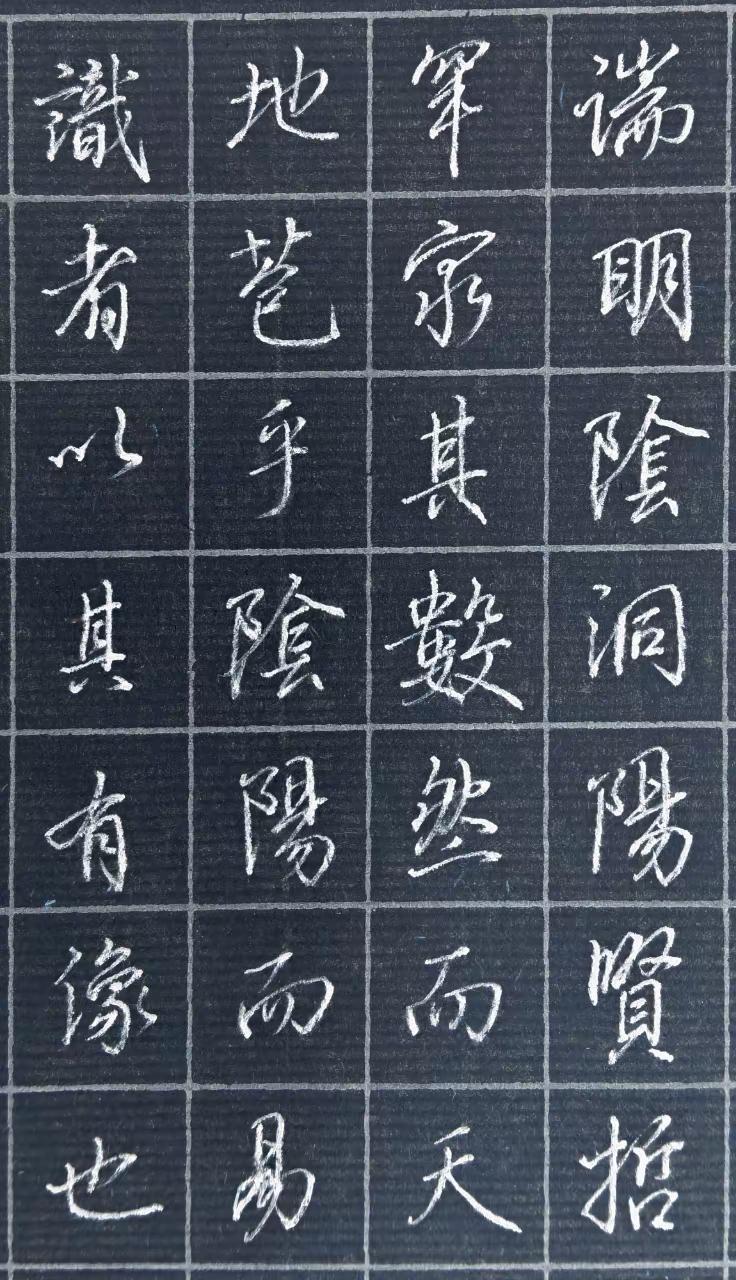 端明陰洞陽賢哲
罕窮其數然而天
地苞乎陰陽而易
識者以其有像也